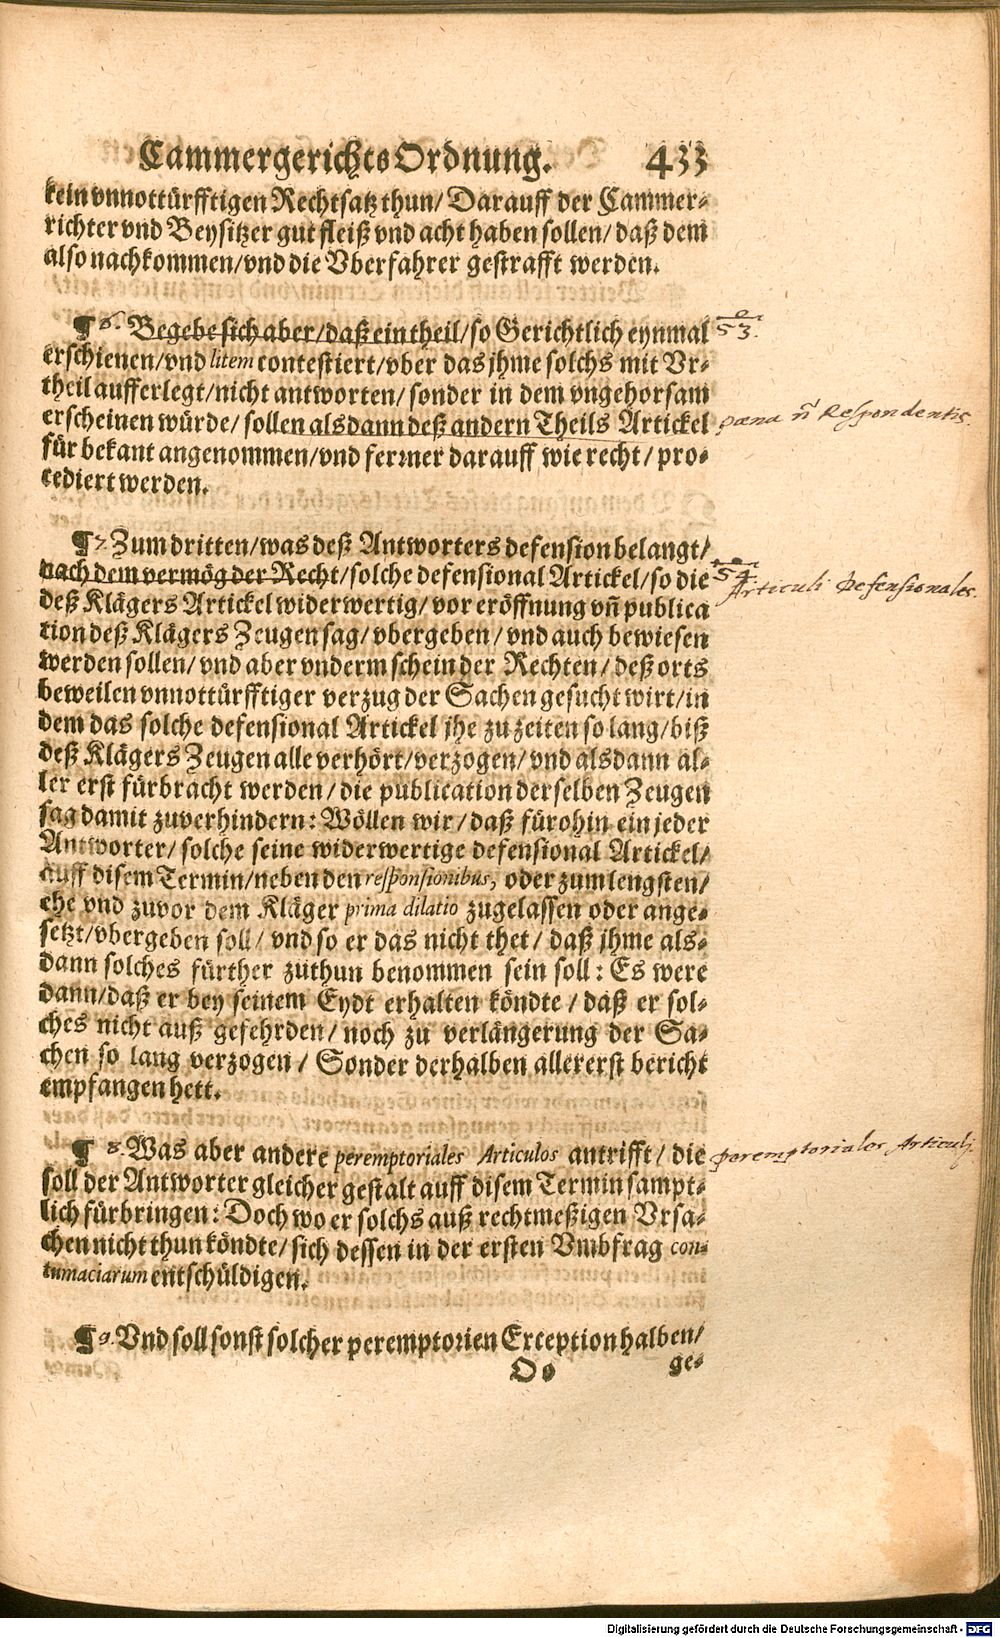 CammergerichtsOrdnung. 433
kein vnnottürfftigen Rechtsatz thun/ Darauff der Cammer-
richter vnd Beysitzer gut fleiß vnd acht haben sollen/ daß dem
also nachkommen/vnd die Vberfahrer gestrafft werden.
¶ 6. Begebe sich aber/daß ein theil/so Gerichtlich eynmal 53.
erschienen/vnd litem contestiert/vber das jhme solchs mit Vr-
theil aufferlegt/nicht antworten/sonder in dem vngehorsam
erscheinen würde/ sollen alsdann deß andern Theils Artickel pœna ñ Respondentis.
für bekant angenommen/vnd ferrner darauff wie recht/ pro-
cediert werden.
¶ 7. Zum dritten/was deß Antworters defension belangt/
nach dem vermög der Recht/solche defensional Artickel/so die 54. Articuli Defensionales.
deß Klägers Artickel widerwertig/ vor eröffnung vñ publica
tion deß Klägers Zeugen sag/ vbergeben/ vnd auch bewiesen
werden sollen/ vnd aber vnderm schein der Rechten/ deß orts
beweilen vnnottürfftiger verzug der Sachen gesucht wirt/in
dem das solche defensional Artickel jhe zu zeiten so lang/biß
deß Klägers Zeugen alle verhört/verzogen/ vnd alsdann al-
ler erst fürbracht werden/ die publication derselben Zeugen
sag damit zuverhindern: Wöllen wir/ daß fürohin ein jeder
Antworter/ solche seine widerwertige defensional Artickel/
auff disem Termin/neben den responsionibus, oder zum lengsten/
ehe vnd zuvor dem Kläger prima dilatio zugelassen oder ange-
setzt/vbergeben soll/ vnd so er das nicht thet/ daß jhme als-
dann solches fürther zuthun benommen sein soll: Es were
dann/daß er bey seinem Eydt erhalten köndte/ daß er sol-
ches nicht auß gefehrden/ noch zu verlängerung der Sa-
chen so lang verzogen/ Sonder derhalben allererst bericht
empfangen hett.
¶ 8. Was aber andere peremptoriales Articulos antrifft/ die peremptoriales Articulj.
soll der Antworter gleicher gestalt auff disem Termin sampt-
lich fürbringen: Doch wo er solchs auß rechtmeßigen Vrsa-
chen nicht thun köndte/ sich dessen in der ersten Vmbfrag con-
tumaciarum entschüldigen.
¶ 9. Vnd soll sonst solcher peremptorien Exception halben/
Oo ge-
Digitalisierung gefördert durch die Deutsche Forschungsgemeinschaft - DFG